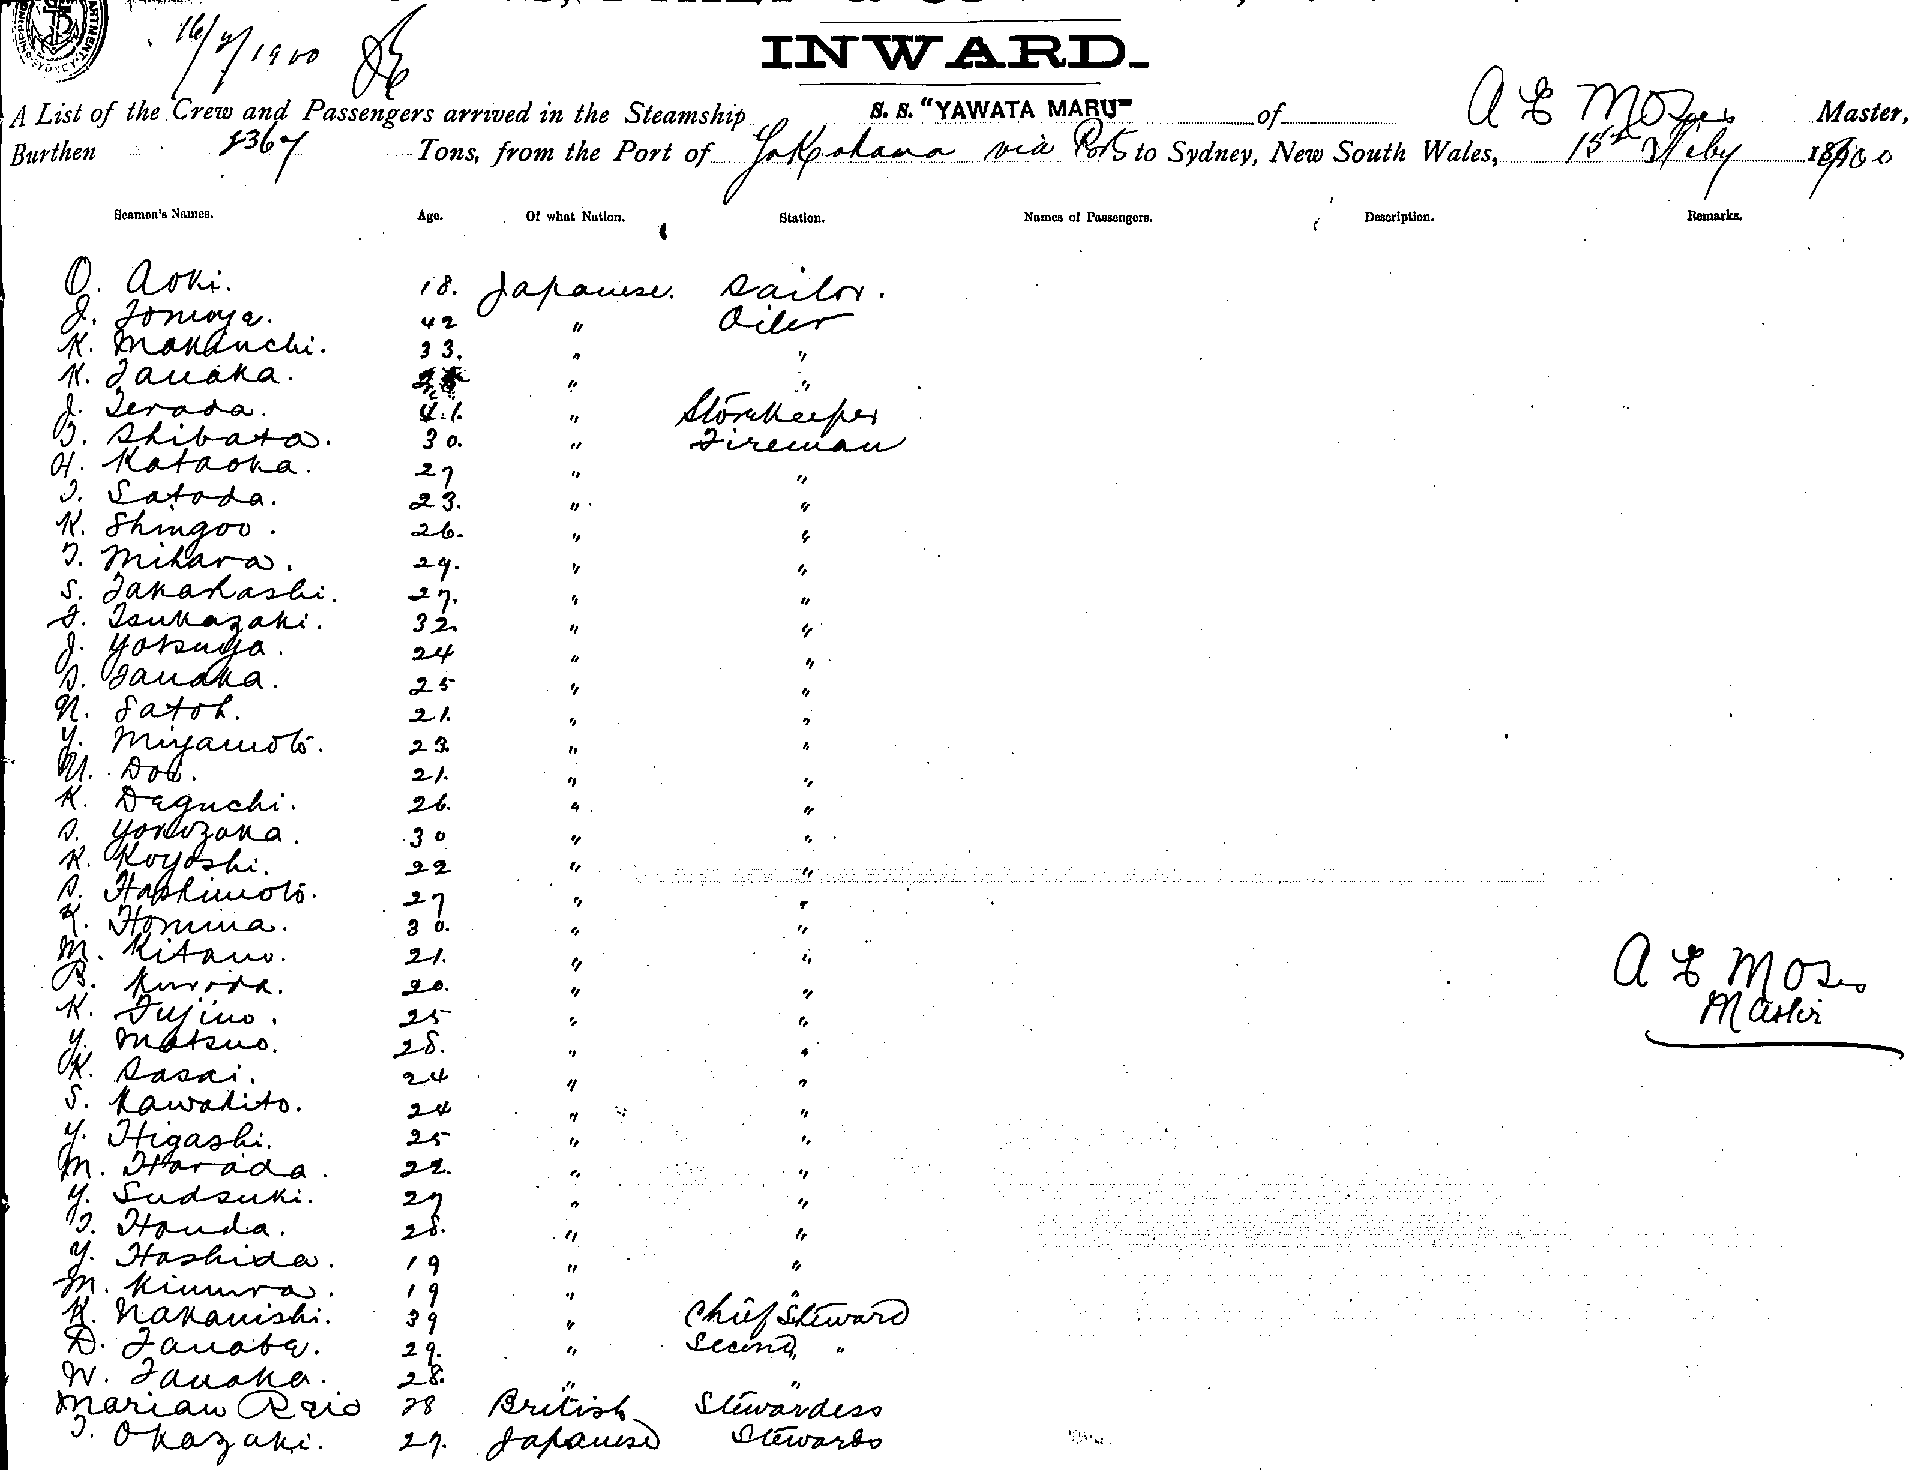 16/2/1900
INWARD.
A List of the Crew and Passengers arrived in the Steamship S. S. "YAWATA MARU" of A E Moses Master,
Burthen 2367 Tons, from the Port of Yokohama via Ports to Sydney, New South Wales, 15th Feby 1900
Seamen's Names. Age. Of what Nation. Station. Names of Passengers. Description. Remarks.
O. Aoki. 18. Japanese. Sailor.
J. Tomoya. 42 " Oiler
K. Makiuchi. 33. " "
K. Tanaka. " "
J. Terada. 41. " Storekeeper
Z. Shibata. 30. " Fireman
H. Kataoka. 27 " "
T. Satoda. 23. " "
K. Shingoo. 26. " "
T. Mihara. 29. " "
S. Takahashi. 27. " "
T. Tsukazaki. 32. " "
J. Yotsuya. 24 " "
S. Tanaka. 25 " "
N. Satoh. 21. " "
Y. Miyamoto. 23. " "
U. Doi. 21. " "
K. Deguchi. 26. " "
S. Yokozaka. 30 " "
K. Koyoshi. 22 " "
S. Hashimoto. 27 " "
K. Homma. 30. " "
M. Kitano. 21. " "
B. Kuroda. 20. " "
K. Fujino. 25 " "
Y. Matsuo. 28. " "
K. Sasai. 24 " "
S. Kawakito. 24 " "
Y. Higashi. 25 " "
M. Harada. 22. " "
Y. Sudsuki. 27 " "
T. Honda. 28. " "
Y. Hoshida. 19 " "
M. Kimura. 19 " "
K. Nakanishi. 39 " Chief Steward
D. Tanabe. 29. " Second "
W. Tanaka. 28. " "
Marian Reid 28 British Stewardess
T. Okazaki. 29. Japanese Stewards
A E Moses
Master